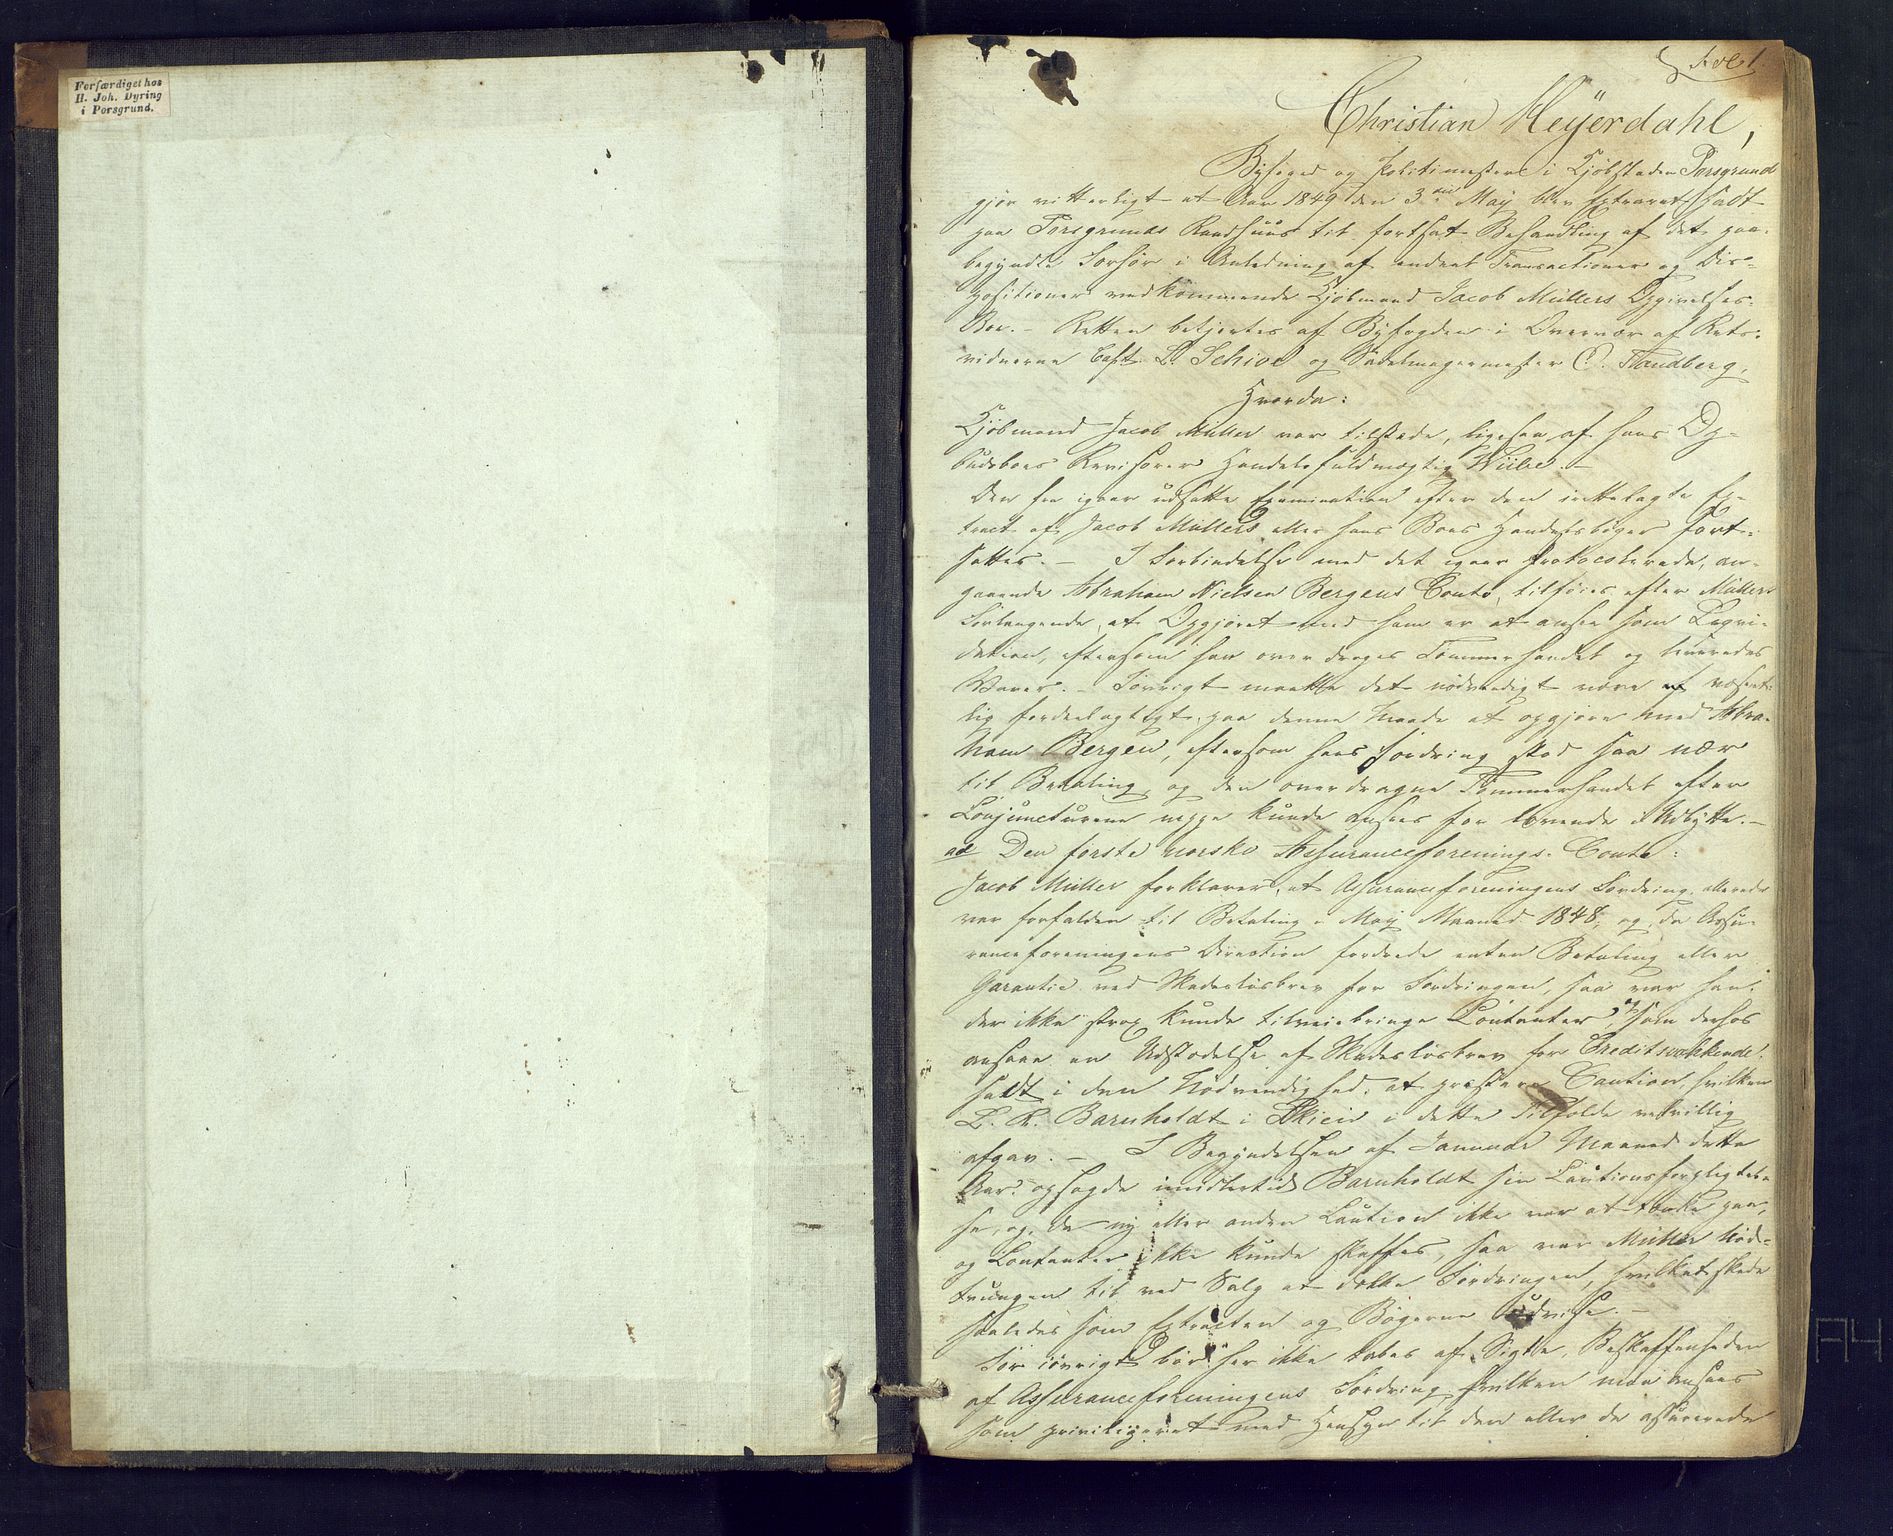 Forfærdiget hos
H. Joh. Dyring
i Porsgrund.
Fol 1.
Christian Meyerdahl,
Byfoged og Politimester i Kjøbstaden Porsgrund
gjør vitterligt at Aar 1849 den 3die May blev Extraret sadt
paa Porsgrunds Raadhuus til fortsat Behandling af det paa-
begyndte Forhør i Anledning af endeel Transactioner og Dis-
positioner vedkommende Kjøbmand Jacob Müllers Opgivelses-
Boe. - Retten betjentes af Byfogden i Overvær af Rets-
vidnerne Capt. L. Schive og Sadelmagermester O. Sandberg,
Hvorda:
Kjøbmand Jacob Müller var tilstede, ligesaa af hans Op-
budsboes Revisorer Handelsfuldmægtig Wiibe. -
Den fra igaar udsatte Examination efter den irettelagte Ex-
tract af Jacob Müllers eller hans Boes Handelsbøger fort-
sattes. - I Forbindelse med det igaar Protocollerede, an-
gaaende Abraham Nielsen Bergens Conto, tilføies efter Müllers
Forlangende, at Opgjøret med ham er at ansee som Liqvi-
dation, eftersom han overdroges Tømmerhandel og leveredes
Varer. - Iøvrigt maatte det nødvendigt være af væsent-
lig fordeelagtigt paa denne Maade at opgjøre med Abra-
ham Bergen, eftersom hans Fordring stod saa nær
til Betaling, og den overdragne Tømmerhandel efter
Conjuncturerne neppe kunde ansees for lovende i Udbytte. -
ad Den første norske Assuranceforenings Conto:
Jacob Müller forklarer, at Assuranceforeningens Fordring allerede
var forfalden til Betaling i May Maaned 1848, og da Assu-
ranceforeningens Direction fordrede enten Betaling eller
Garantie ved Skadesløsbrev for Fordringen, saa var han,
der ikke strax kunde tilveiebringe Contanter og som derhos
ansaae en Udstædelse af Skadesløsbrev for Creditsvækkende,
sadt i den Nødvendighed, at præstere Caution, hvilken
Barnholdt i Skien i dette Tilfælde velvillig
afgav. - I Begyndelsen af Januar Maaned dette
Aar opsagde imidlertid Barnholdt sin Cautionsforpligtel-
se, og, da ny eller anden Caution ikke var at tænke paa,
og Contanter ikke kunde skaffes, saa var Müller nød-
tvungen til ved Salg at dække Fordringen, hvilket skede
saaledes som Extracten og Bøgerne udvise. -
For iøvrigt bør her ikke tabes af Sigte, Beskaffenheden
af Assuranceforeningens Fordring, hvilken maa ansees
som privilegeret med Hensyn til den eller de assurerede